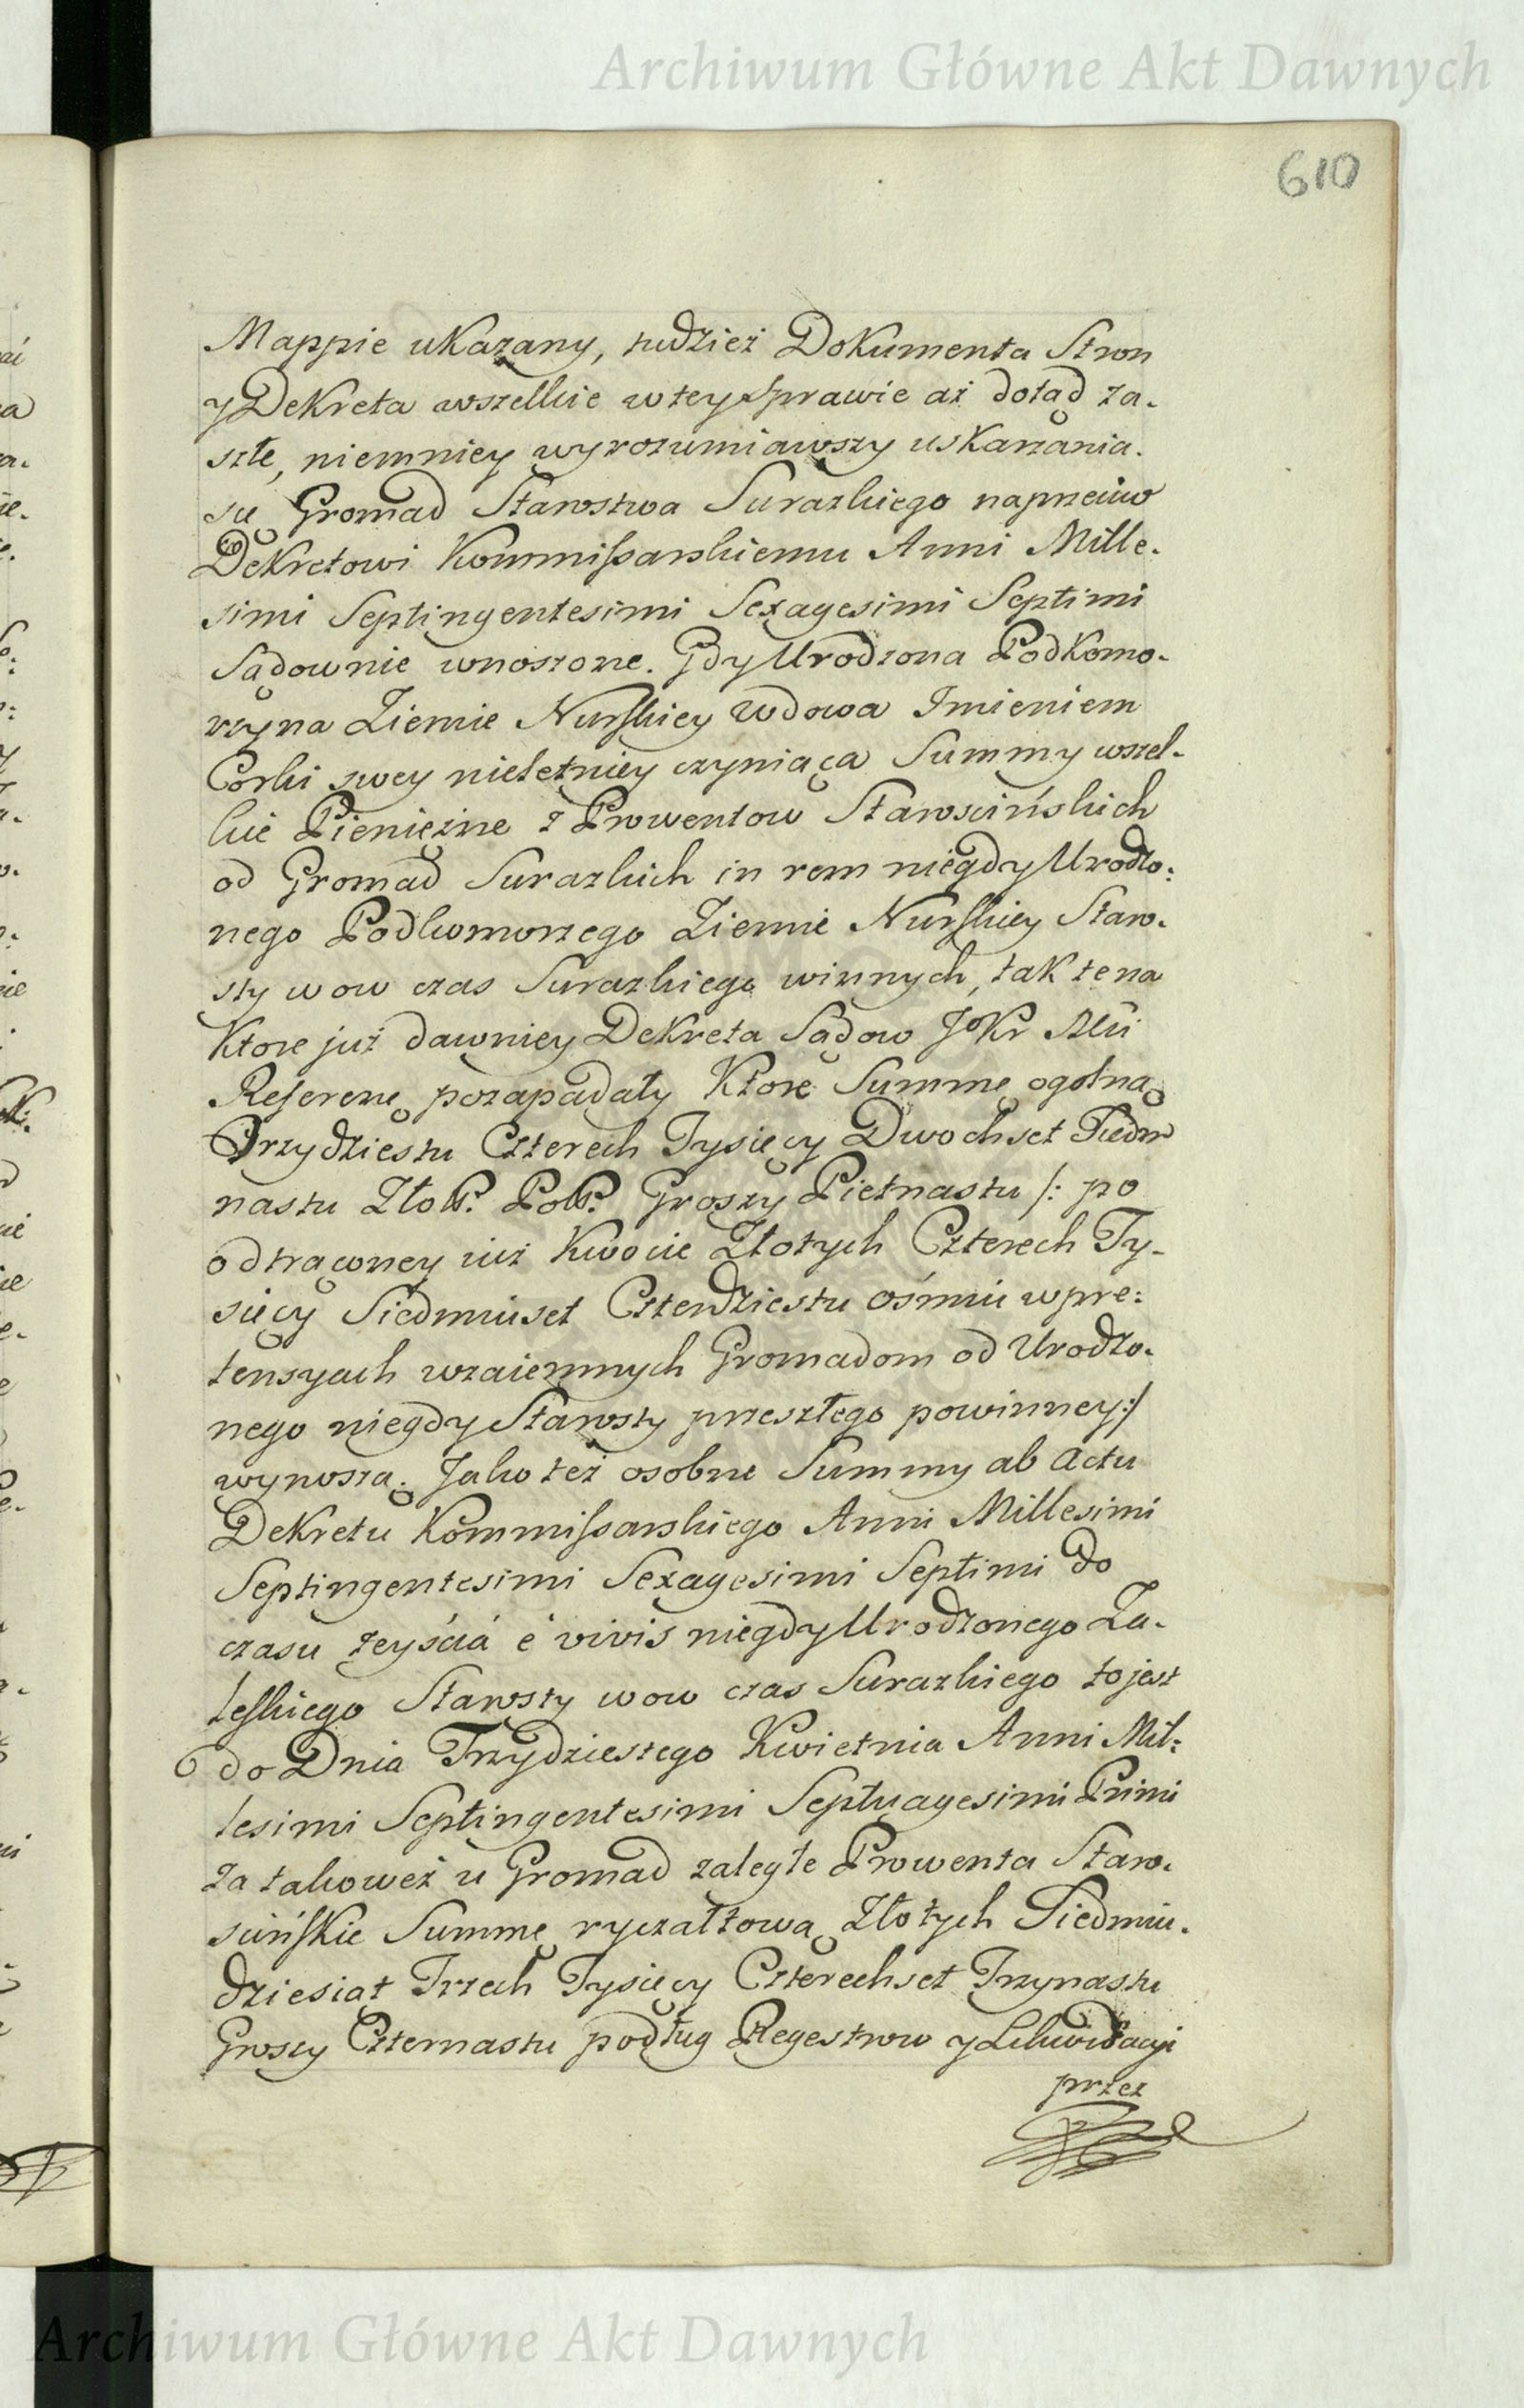 Archiwum Główne Akt Dawnych
610
Mappie ukazany, tudzież Dokumenta Stron
y Dekreta wszelkie w tey Sprawie aż dotąd za-
szłe, niemniey wyrozumiawszy uskarzania
się Gromad Starostwa Surazkiego naprzeciw
Dekretowi Kommissarskiemu Anni Mille-
simi Septingentesimi Sexagesimi Septimi
Sądownie wnoszone. Gdy Urodzona Podkomo-
rzyna Ziemie Nurskiey Wdowa Imieniem
Corki swey nieletniey czyniąca Summy wszel-
kie Pieniężne z Prowentow Starościńskich
od Gromad Surazkich in rem niegdy Urodzo:
nego Podkomorzego Ziemie Nurskiey Staro-
sty w ow czas Surazkiego winnych, tak te na
Ktore już dawniey Dekreta Sądow JoKr Mći
Referenę pozapadały Ktore Summę ogolną
Trzydziestu Czterech Tysięcy Dwochset Siedm
nastu Złott. Poll. Groszy Piętnastu /: po
odtrąconey iuż Kwocie Złotych Czterech Ty-
sięcy Siedmiuset Czterdziestu ośmiu w pre:
tensyach wzaiemnych Gromadom od Urodzo-
nego niegdy Starosty przeszłego powinney :/
wynoszą. Jako też osobne Summy ab actu
Dekretu Kommissarskiego Anni Millesimi
Septingentesimi Sexagesimi Septimi do
czasu zeyściá é vivis niegdy Urodzonego Za-
leskiego Starosty w ow czas Surazkiego to jest
do Dnia Trzydziestego Kwietnia Anni Mil:
lesimi Septingentesimi Septuagesimi Primi
za takoweż u Gromad zaległe Prowenta Staro-
scińskie Summę ryczałtową Złotych Siedmiu-
dziesiąt Trzech Tysięcy Czterechset Trzynastu
Groszy Czternastu podług Regestrow y Likwidacyi
przez
Archiwum Główne Akt Dawnych